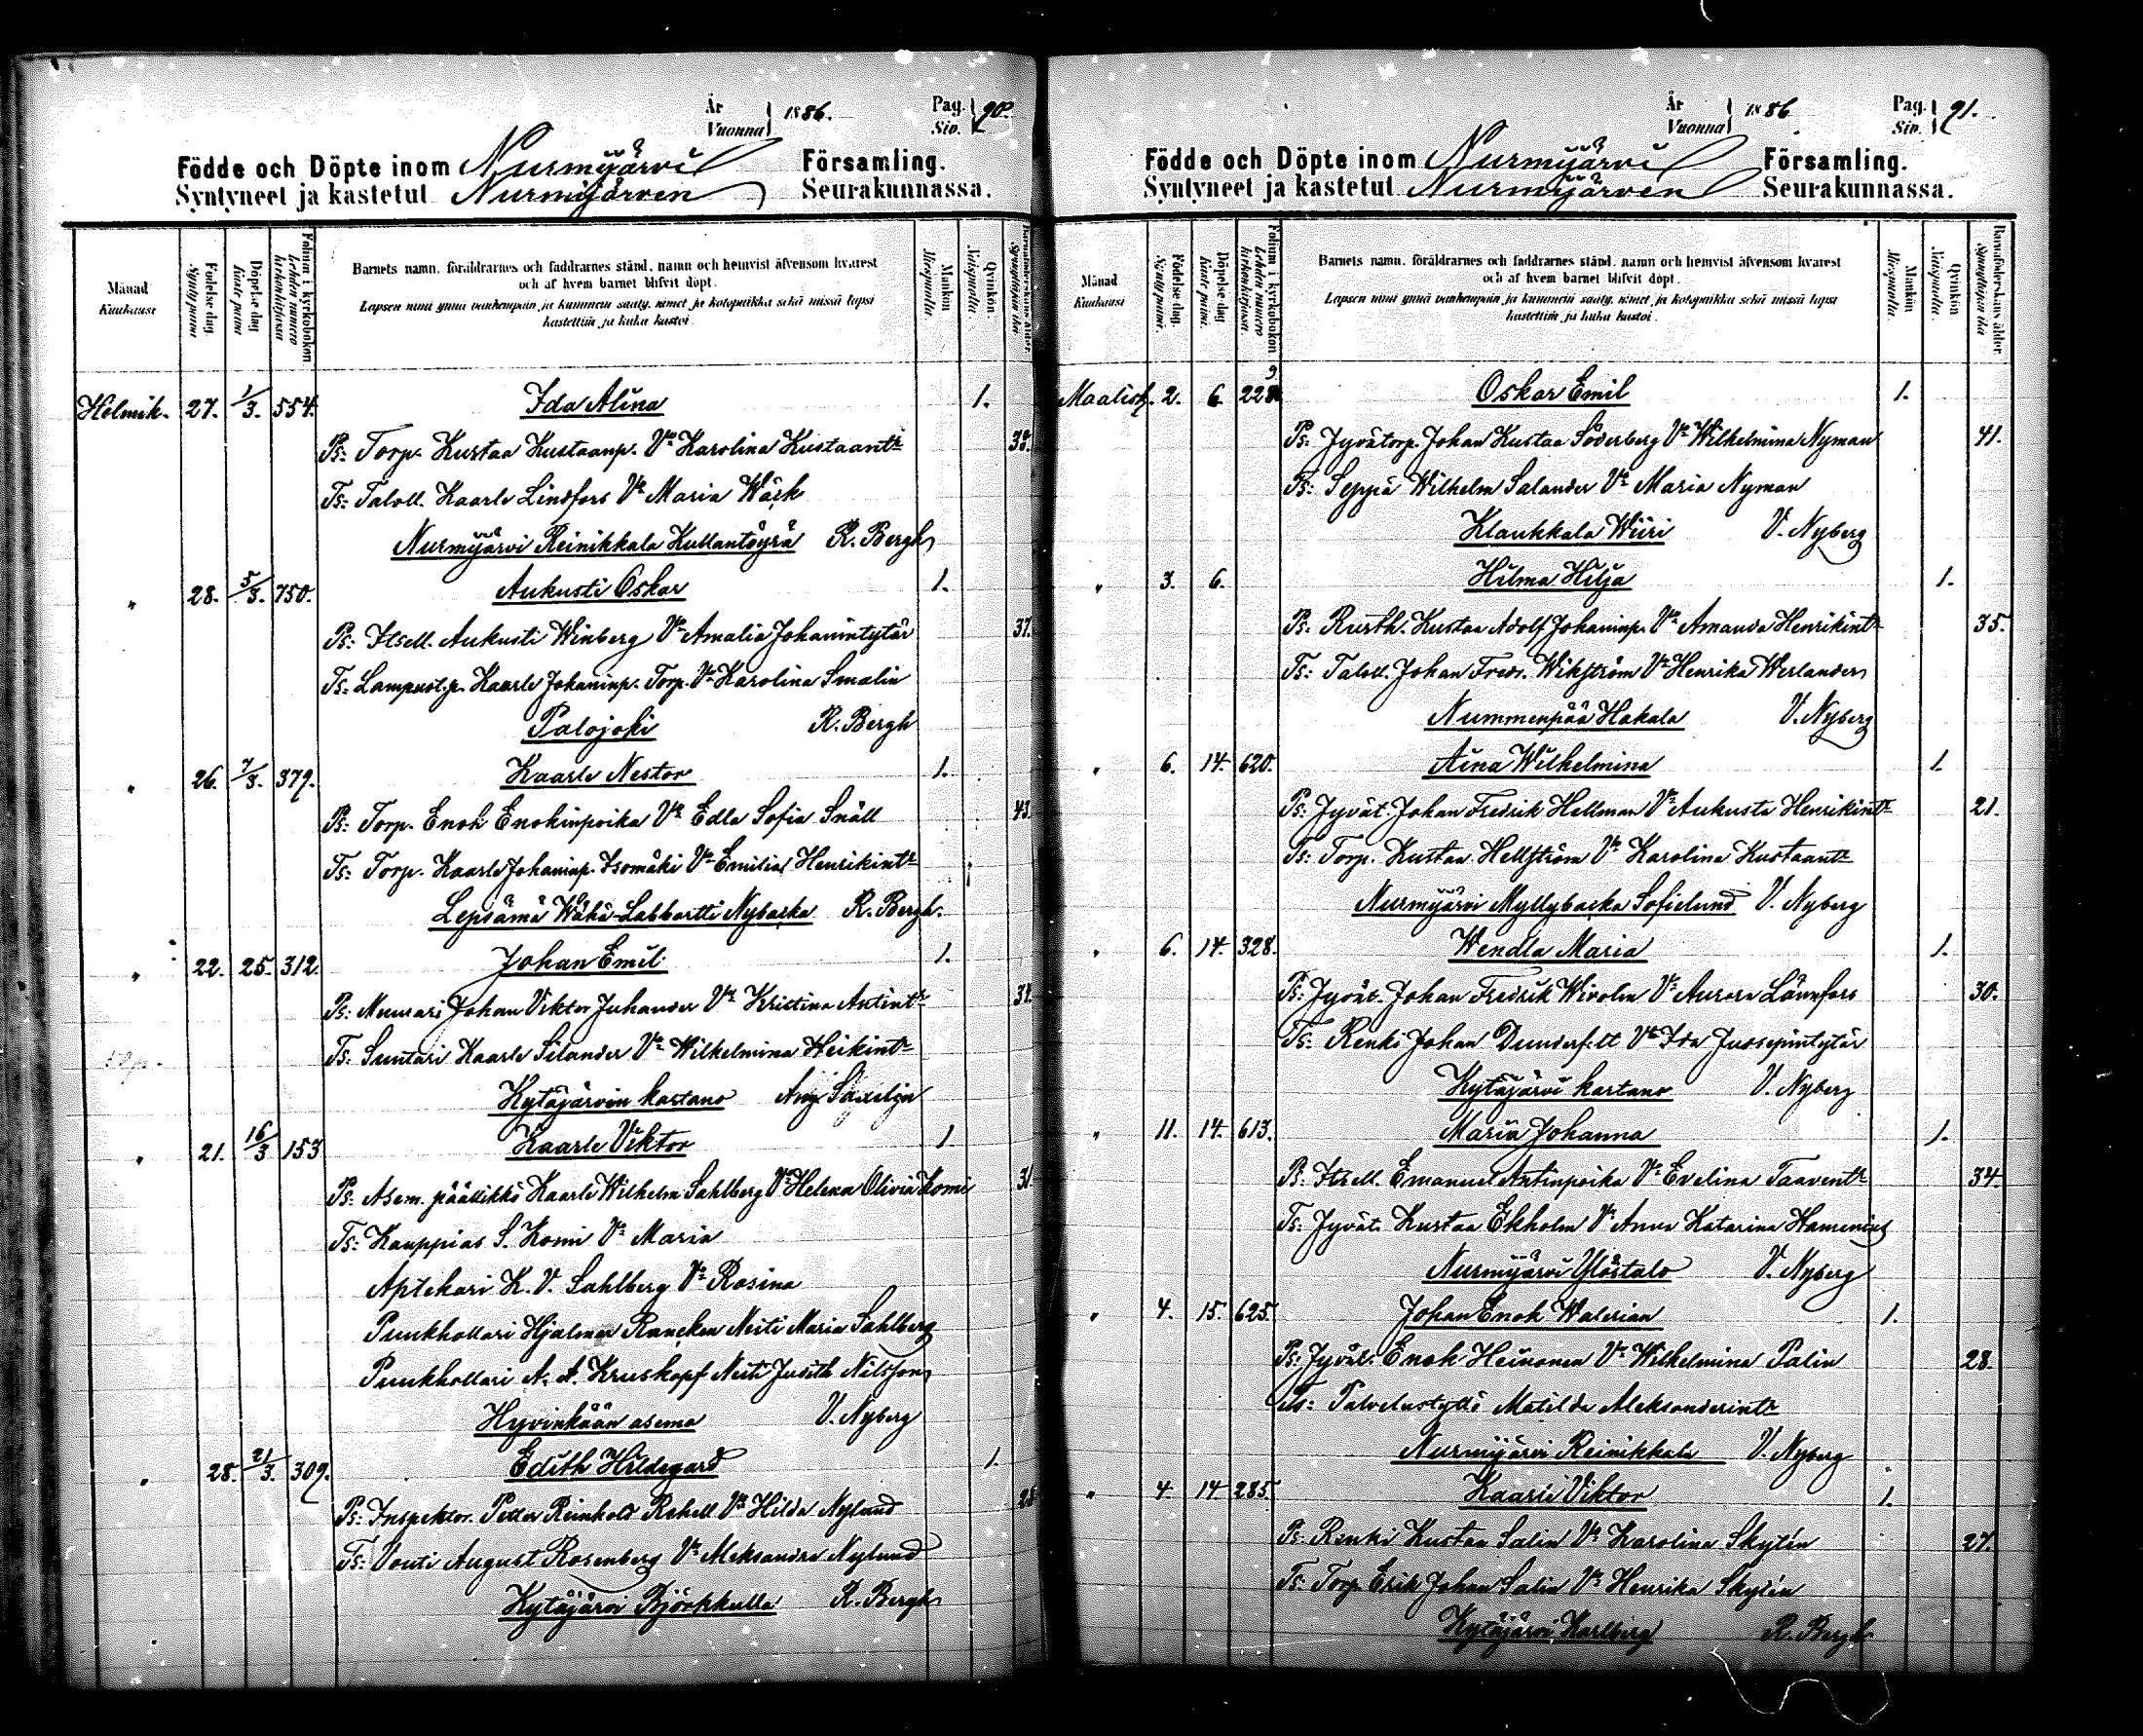 År Vuonna 1886. Pag. Siv. 90.
Födde och Döpte inom Nurmijärvi Församling.
Syntyneet ja kastetut Nurmijärven Seurakunnassa.
Månad Kuukausi
Födelse dag. Syntypäivä
Döpelse dag Kaste päivä
Folium i kyrkobokon. Lehden numero kirkonkirjassa
Barnets namn, föräldrarnes och faddrarnes stånd, namn och hemvist äfvensom hvarest
och af hvem barnet blifvit döpt.
Lapsen nimi ynnä vanhempain ja kummein sääty, nimet ja kotopaikka sekä missä lapsi
kastettiin ja kuka kastoi.
Mankön Miespuolia
Qvinkön Naispuolia.
Barnaföderskans ålder. Synnyttäjän ikä
Helmik. 27. 1/3. 554. Ida Alina 1.
Ps: Torp. Kustaa Kustaanp. Vo Karolina Kustaantr 38.
Ts: Taloll. Kaarle Lindfors Vo Maria Wäck
Nurmijärvi Reinikkala Kullantöyrä R. Bergh
" 28. 5/3. 750. Aukusti Oskar 1.
Ps: Itsell. Aukusti Winberg Vo Amalia Johanintytär 37.
Ts: Lampuot.p. Kaarle Johaninp. Torp. Vo Karolina Smalin
Palojoki R. Bergh
" 26. 7/3. 379. Kaarle Nestor 1.
Ps: Torp. Enok Enokinpoika Vo Edla Sofia Snäll 43.
Ts: Torp. Kaarle Johaninp. Isomäki Vo Emilia Henrikintr
Lepsämä Wähä-Labbartti Nybacka R. Bergh.
" 22. 25. 312. Johan Emil 1.
Ps: Muurari Johan Viktor Juhander Vo Kristina Antintr
Ts: Suntari Kaarle Silander Vo Wilhelmina Heikintr
Kytäjärvin kartano Saxelin
" 21. 16/3 153 Kaarle Viktor 1.
Ps: Asem. päällikkö Kaarle Wilhelm Sahlberg Vo Helena Olivia Komi 31
Ts: Kauppias S. Komi Vo Maria
Aptekari K. V. Sahlberg Vo Rosina
Puukhollari Hjalmar Rancken Neiti Maria Sahlberg
Puukhollari A. A. Kruskopf Neiti Judith Nilsson
Hyvinkään asema V. Nyberg
" 28. 21/3. 309. Edith Hildegard 1.
Ps: Inspektor. Petter Reinhold Rehell Vo Hilda Nylund 28
Ts: Vouti August Rosenberg Vo Aleksandra Nylund
Kytäjärvi Björkkulla R. Bergh
År Vuonna 1886. Pag. Siv. 91.
Födde och Döpte inom Nurmijärvi Församling.
Syntyneet ja kastetut Nurmijärven Seurakunnassa.
Månad Kuukausi
Födelse-dag. Syntypäivä.
Döpelse-dag Kaste päivä.
Folium i kyrkobokon. Lehden numero kirkonkirjassa
Barnets namn, föräldrarnes och faddrarnes stånd, namn och hemvist äfvensom hvarest
och af hvem barnet blifvit döpt.
Lapsen nimi ynnä vanhempain ja kummein sääty, nimet ja kotopaikka sekä missä lapsi
kastettiin ja kuka kastoi.
Mankön Miespuolia.
Qvinkön Naispuolia.
Barnaföderskans ålder. Synnyttäjän ikä
Maalisk. 2. 6. 229 Oskar Emil 1.
Ps: Jyvätorp. Johan Kustaa Söderberg Vo Wilhelmina Nyman 41.
Ts: Seppä Wilhelm Salander Vo Maria Nyman
Klaukkala Wiiri V. Nyberg
" 3. 6. Hilma Hilja 1.
Ps: Rusth. Kustaa Adolf Johaninp. Vo Amanda Henrikintr 35.
Ts: Taloll. Johan Fredr. Wikström Vo Henrika Werlander
Nummenpää Hakala V. Nyberg
" 6. 14. 620. Aina Wilhelmina 1.
Ps: Jyvät. Johan Fredrik Hellman Vo Aukusta Henrikintr 21.
Ts: Torp. Kustaa Hellström Vo Karolina Kustaantr
Nurmijärvi Myllybacka Sofielund V. Nyberg
" 6. 14. 328. Wendla Maria 1.
Ps: Jyvät. Johan Fredrik Wivolin Vo Aurora Lönnfors 30.
Ts: Renki Johan Dunderfelt Vo Ida Juosepintytär
Kytäjärvi kartano V. Nyberg
" 11. 14. 613. Maria Johanna 1.
Ps: Itsell. Emanuel Antinpoika Vo Evelina Taaventr 34.
Ts: Jyvät. Kustaa Ekholm Vo Anna Katarina Hamrenius
Nurmijärvi Ylöstalo V. Nyberg
" 4. 15. 625. Johan Enok Walerian 1.
Ps: Jyvät. Enok Heinonen Vo Wilhelmina Palin 28.
Ts: Palvelustyttö Matilda Aleksanderintr
Nurmijärvi Reinikkala V. Nyberg
" 4. 14 285. Kaarli Viktor 1.
Ps: Renki Kustaa Salin Vo Karolina Skytén 27.
Ts: Torp. Erik Johan Salin Vo Henrika Skytén
Kytäjärvi Karlberg R. Bergh